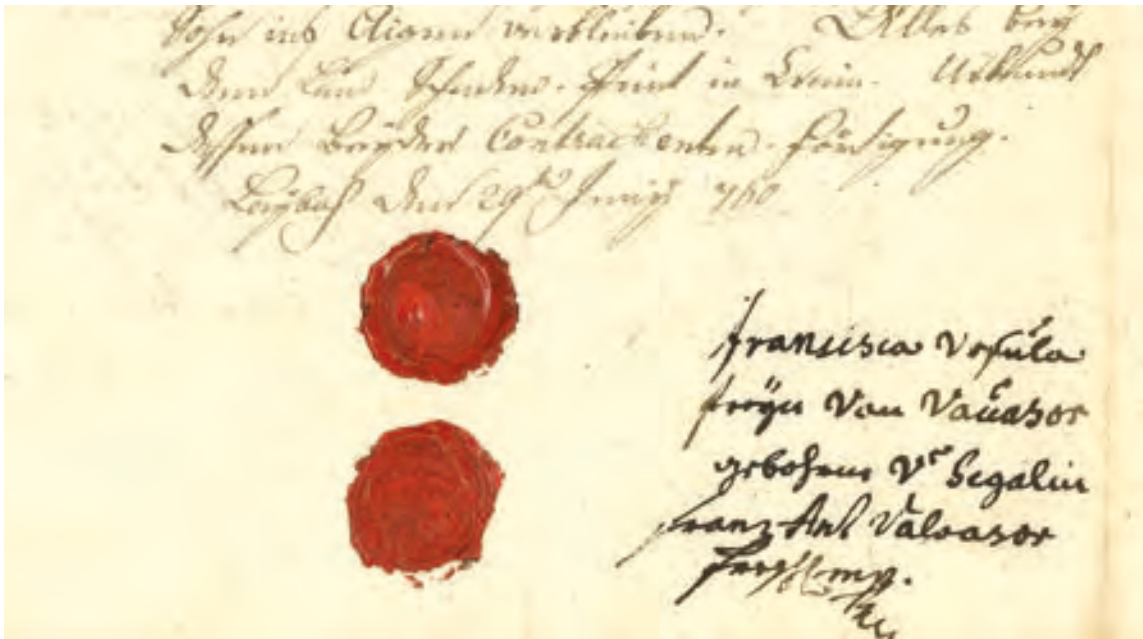 Sohn ins Aigen verbleiben. Alles bey
dem Land Schaden-Pint in Crain. Urkundt
dessen beyder Contrackenten förtigung.
Laybach den 29t Juny 760
francisca Vrsula
freÿin Von Vaúasor
gebohrene Vn Segalin
franz Ant Valvasor